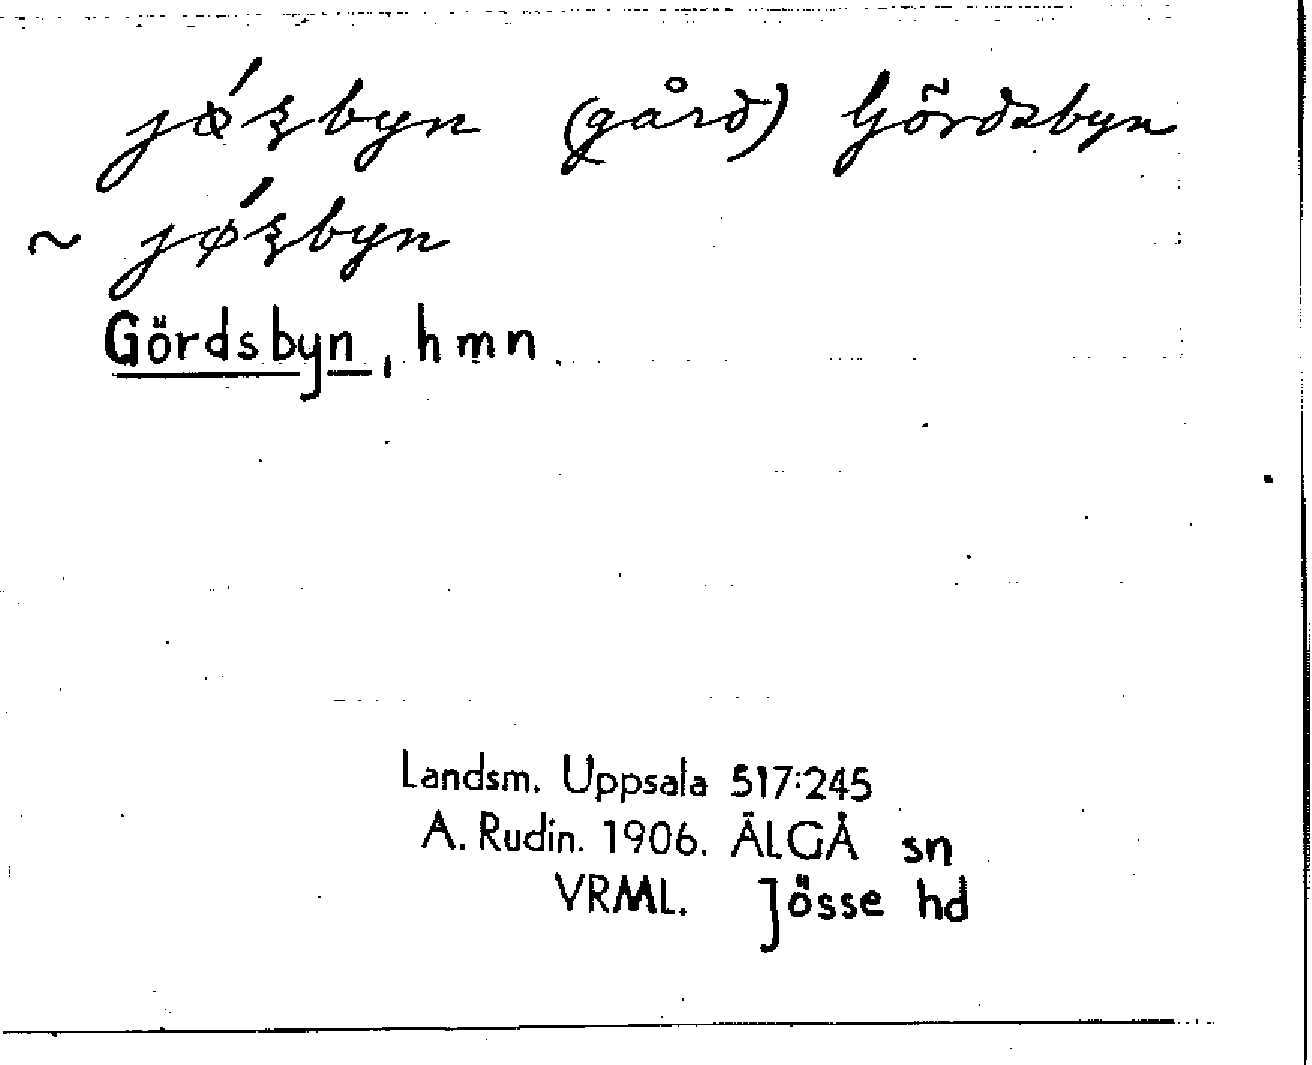 (gård) Gördsbyn
~
Gördsbyn, hmn
Landsm. Uppsala 517:245
A. Rudin. 1906. ÄLGÅ sn
VRML. Jösse hd